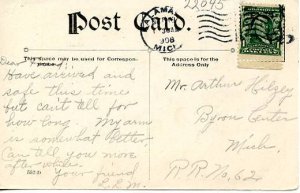 22045
Post Card.
KALAMAZ
1908
MICH.
This space may be used for Correspon-
This space is for the
Address Only
Dear
Have arrived and
safe this time
but can't tell for
how long. My arm
is somewhat better,
can tell you more
after while.
Your friend
L.R.M.
Mr. Arthur Hilzey
Byron Center
Mich.
R.R. No. 62